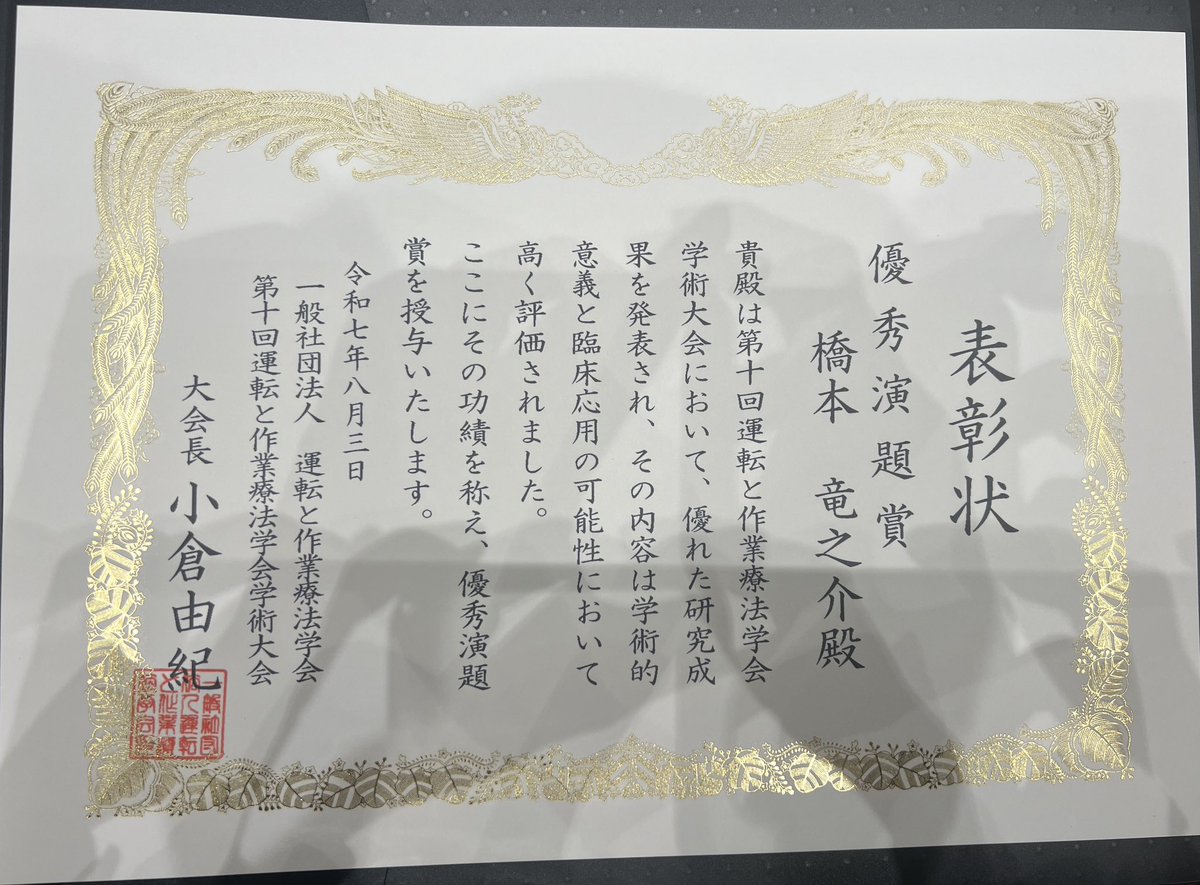 表彰状
優秀演題賞
橋本 竜之介殿
貴殿は第十回運転と作業療法学会
学術大会において、優れた研究成
果を発表され、その内容は学術的
意義と臨床応用の可能性において
高く評価されました。
ここにその功績を称え、優秀演題
賞を授与いたします。
令和七年八月三日
一般社団法人 運転と作業療法学会
第十回運転と作業療法学会学術大会
大会長 小倉由紀